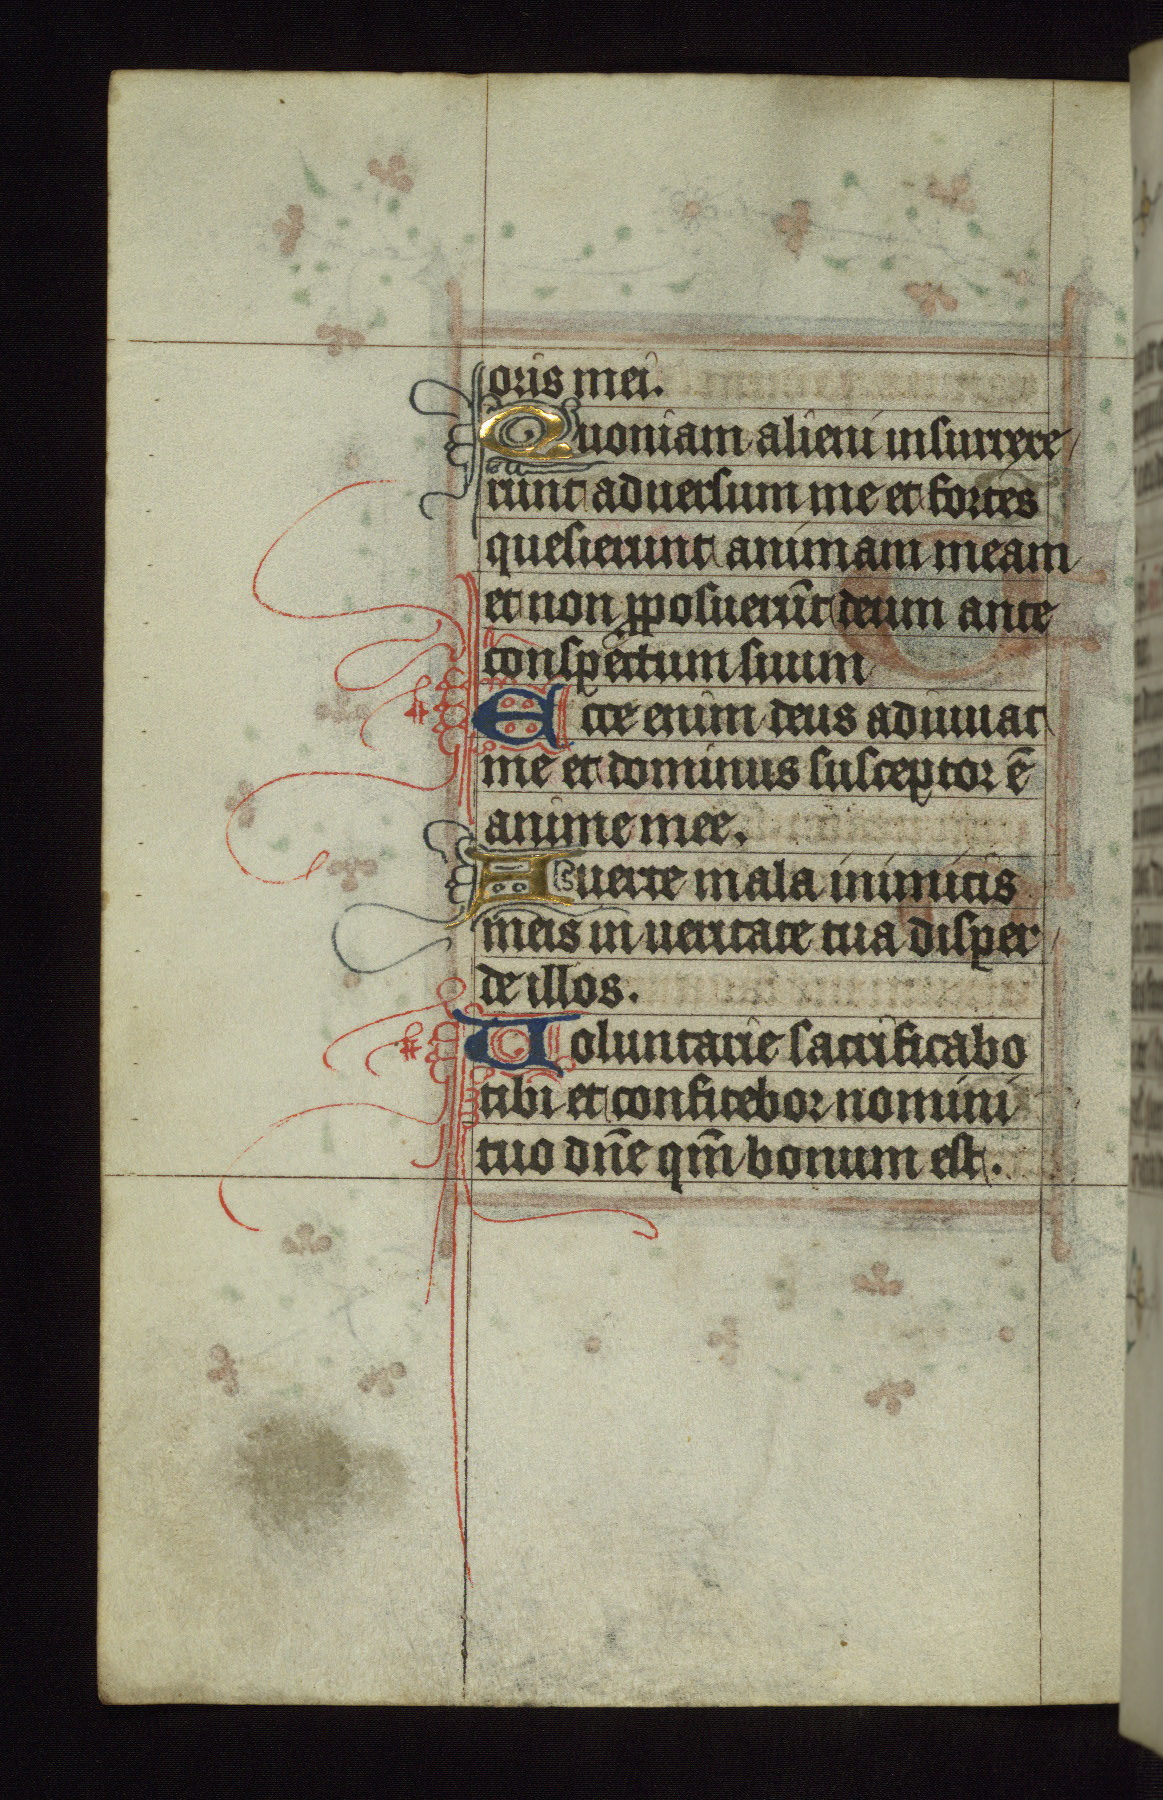 oris mei.
Quoniam alieni insurrexe
runt aduersum me et fortes
quesierunt animam meam
et non pposuerūt deum ante
conspectum suum
Ecce enim deus adiuuat
me et dominus susceptor ē
anime mee.
Auerte mala inimicis
meis in ueritate tua disper
de illos.
Uoluntarie sacrificabo
tibi et confitebor nomini
tuo dn̄e qm̄ bonum est.